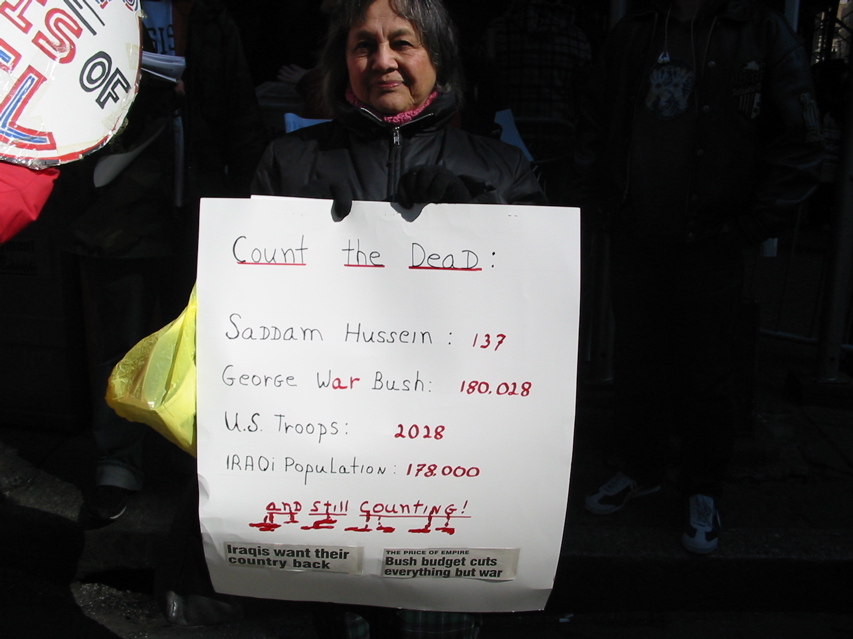 IS OF
Count the Dead:
Saddam Hussein: 137
George War Bush: 180.028
U.S. Troops: 2028
IRAQi Population: 178.000
and still counting!
Iraqis want their
country back
THE PRICE OF EMPIRE
Bush budget cuts
everything but war